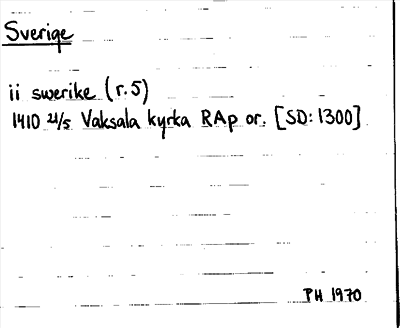 Sverige
ii swerike (r.5)
1410 21/5 Vaksala kyrka RAp or. [SD: 1300]
PH 1970